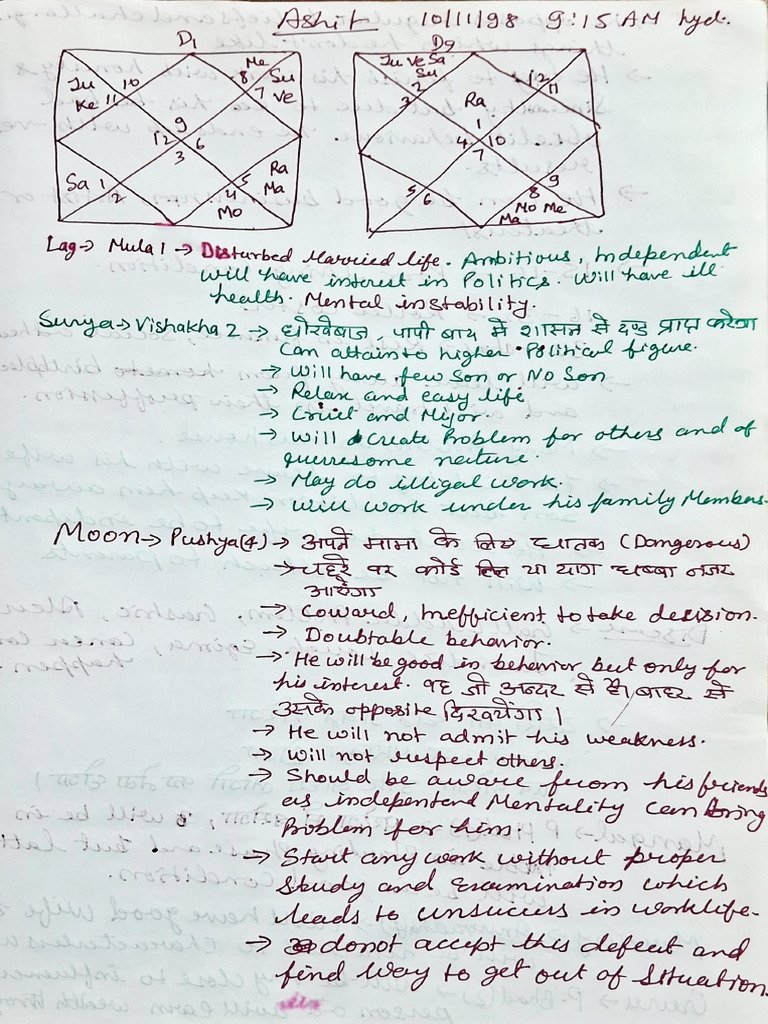 Ashit 10/11/98 9:15 AM hyd.
D1 D9
Ju Ke 11 10 9 Me 8 Su 7 Ve
12 6 3
Sa 1 2 4 Mo 5 Ra Ma
Ju Ve Sa Su 2 3 Ra 1 12 11
4 10 7
5 6 Ma 8 Mo Me 9
Lag → Mula 1 → Disturbed Married life. Ambitious, Independent
will have interest in Politics. Will have ill
health. Mental instability.
Surya → Vishakha 2 → धोखेबाज, पापी बाद में शासन से दण्ड प्राप्त करेगा
Can attain to higher Political figure.
→ Will have few Son or No Son
→ Relax and easy life
→ Cruel and
→ Will Create Problem for others and of
nature.
→ May do illigal work.
→ Will work under his family Members.
Moon → Pushya(4) → अपने मामा के लिये घातक (Dangerous)
→ पर कोई या धब्बा नजर
आयेगा
→ Coward, Inefficient to take decision.
→ Doubtable behavior.
→ He will be good in behavior but only for
his interest. वह जो अन्दर से है। बाहर से
उसके opposite दिखायेंगा।
→ He will not admit his weakness.
→ Will not respect others.
→ Should be aware from his friends
as independend Mentality can bring
Problem for him.
→ Start any work without proper
Study and Examination which
leads to unsuccess in worklife.
→ donot accept this defeat and
find way to get out of Situation.